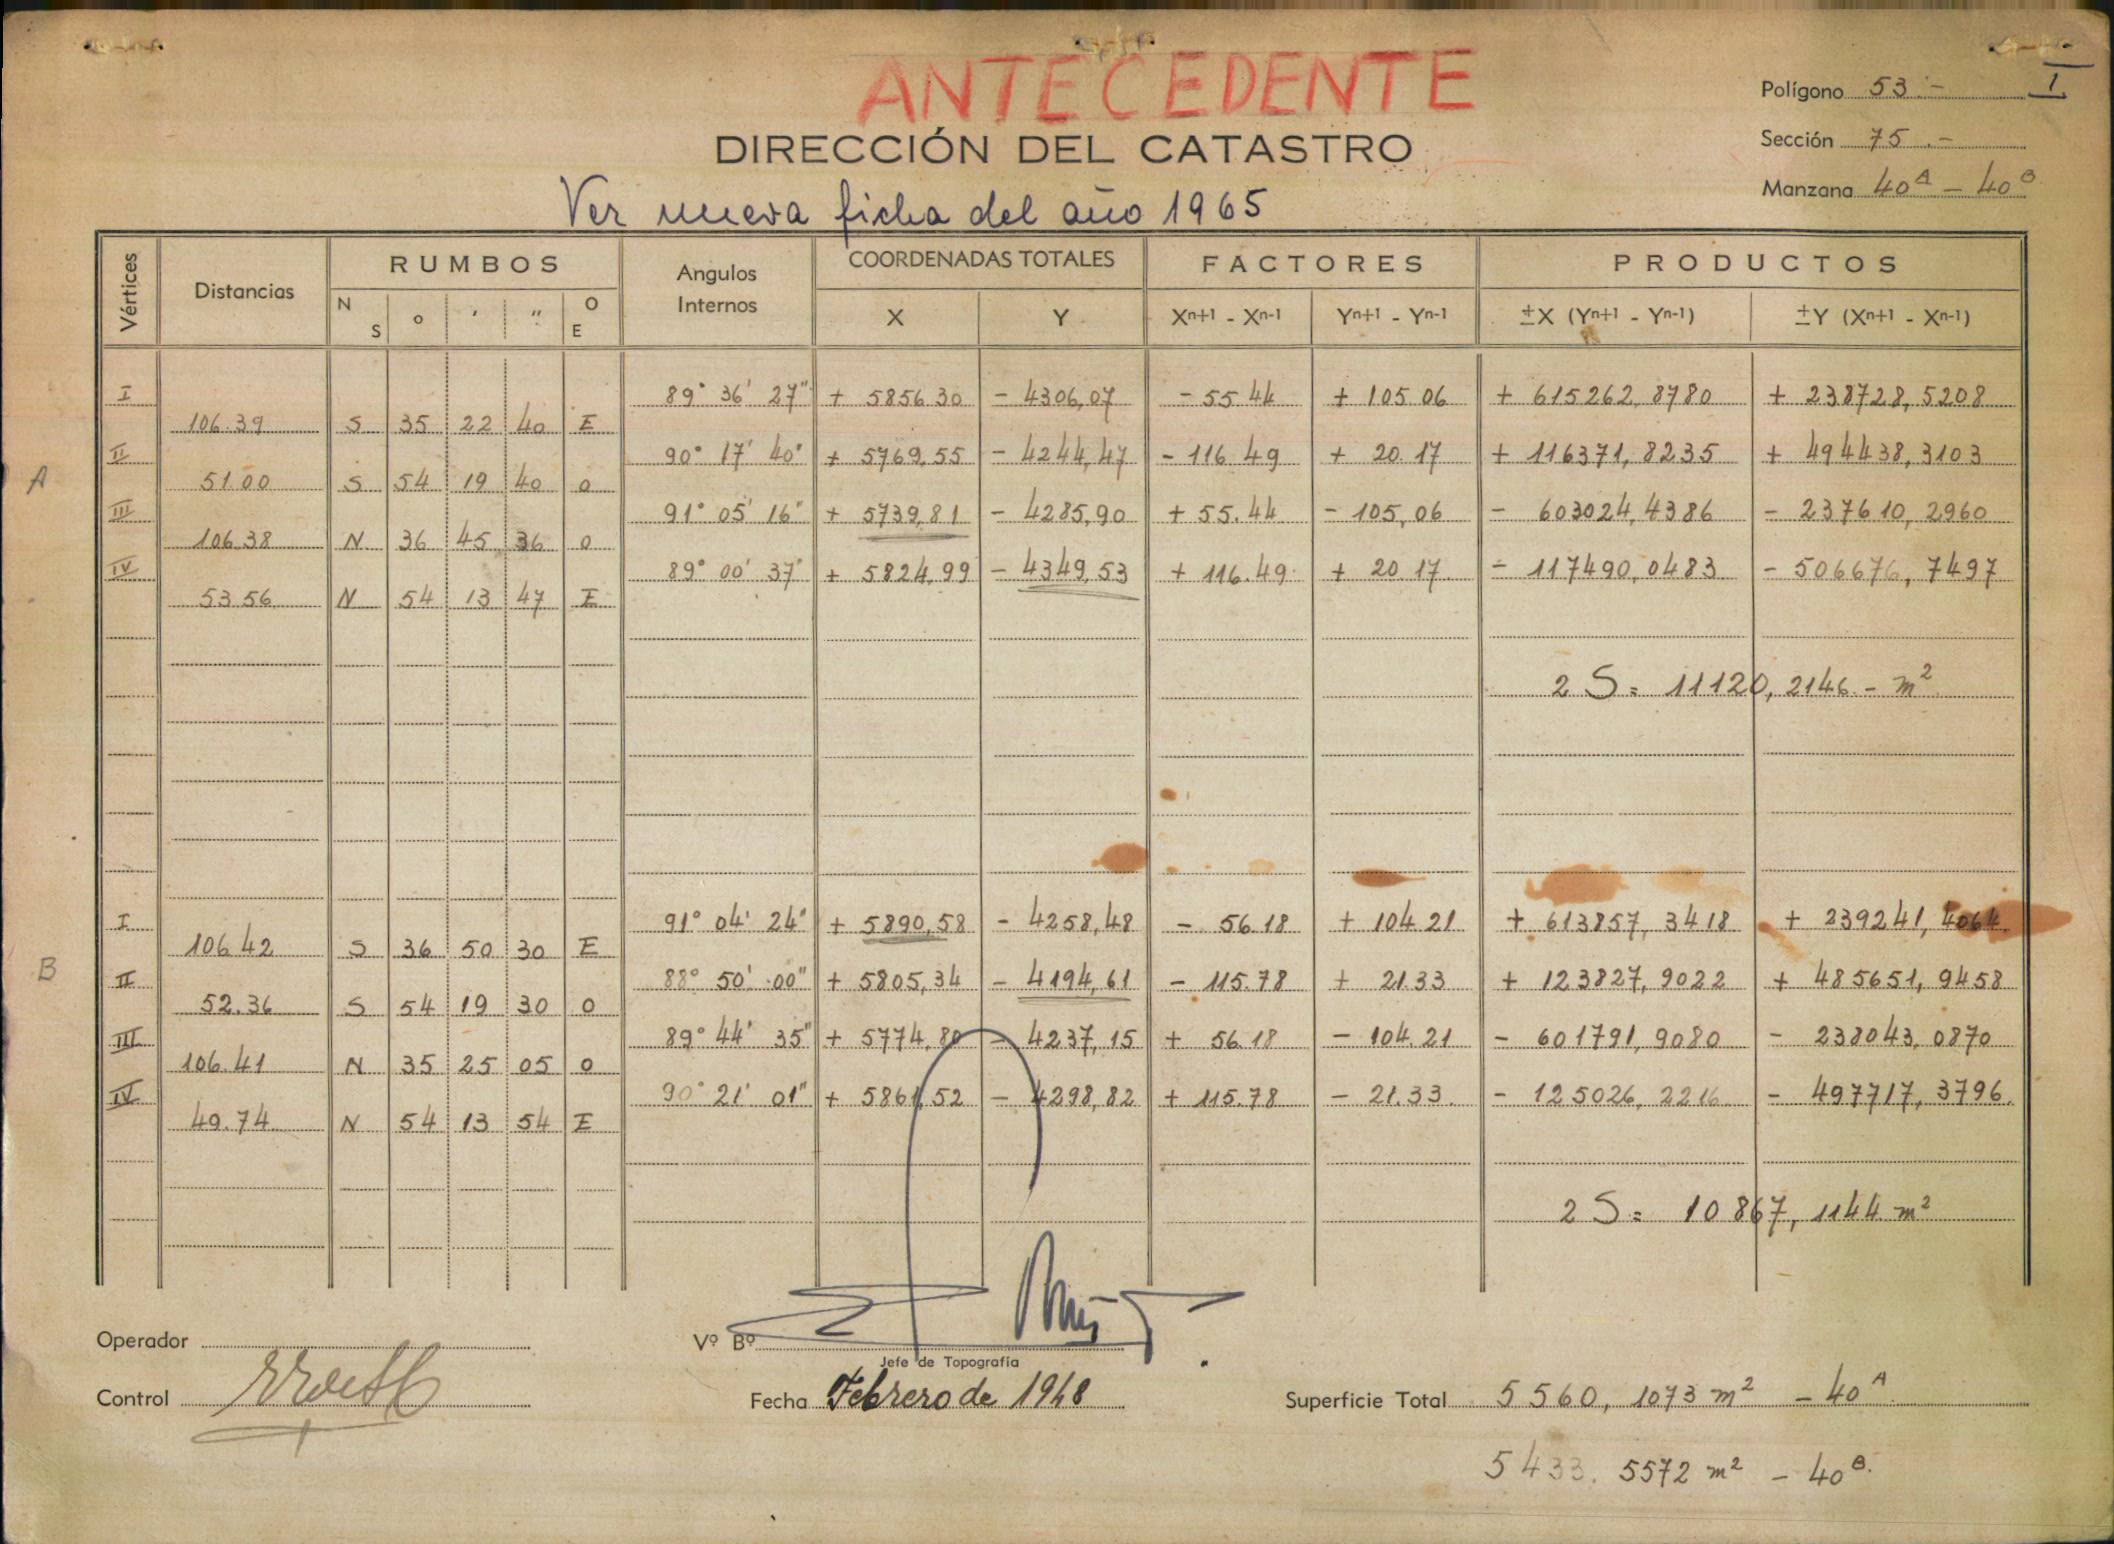 ANTECEDENTE
Polígono 53.- I
1
DIRECCIÓN DEL CATASTRO
Sección 75.-
Manzana 40A - 40B
Ver nueva ficha del año 1965
Vértices Distancias RUMBOS Angulos Internos COORDENADAS TOTALES FACTORES PRODUCTOS
N S o ' " O E X Y Xn+1 - Xn-1 Yn+1 - Yn-1 ±X (Yn+1 - Yn-1) ±Y (Xn+1 - Xn-1)
I 89° 36' 27" + 5856.30 - 4306,07 - 55.44 + 105.06 + 615262,8780 + 238728,5208
106.39 S 35 22 40 E
II 90° 17' 40" + 5769,55 - 4244,47 - 116.49 + 20.17 + 116371,8235 + 494438,3103
A 51.00 S 54 19 40 O
III 91° 05' 16" + 5739,81 - 4285,90 + 55.44 - 105,06 - 603024,4386 - 237610,2960
106.38 N 36 45 36 O
IV 89° 00' 37" + 5824,99 - 4349,53 + 116.49 + 20.17 - 117490,0483 - 506676,7497
53.56 N 54 13 47 E
2 S = 11120,2146 - m²
I 91° 04' 24" + 5890,58 - 4258,48 - 56.18 + 104.21 + 613857,3418 + 239241,4064
106.42 S 36 50 30 E
B II 88° 50' 00" + 5805,34 - 4194,61 - 115.78 + 21.33 + 123827,9022 + 485651,9458
52.36 S 54 19 30 O
III 89° 44' 35" + 5774,80 - 4237,15 + 56.18 - 104.21 - 601791,9080 - 238043,0870
106.41 N 35 25 05 O
IV 90° 21' 01" + 5861,52 - 4298,82 + 115.78 - 21.33 - 125026,2216 - 497717,3796
49.74 N 54 13 54 E
2 S = 10867,1144 m²
Operador
Vº Bº
Jefe de Topografía
Control
Fecha Febrero de 1948
Superficie Total 5560,1073 m² - 40A
5433.5572 m² - 40B.